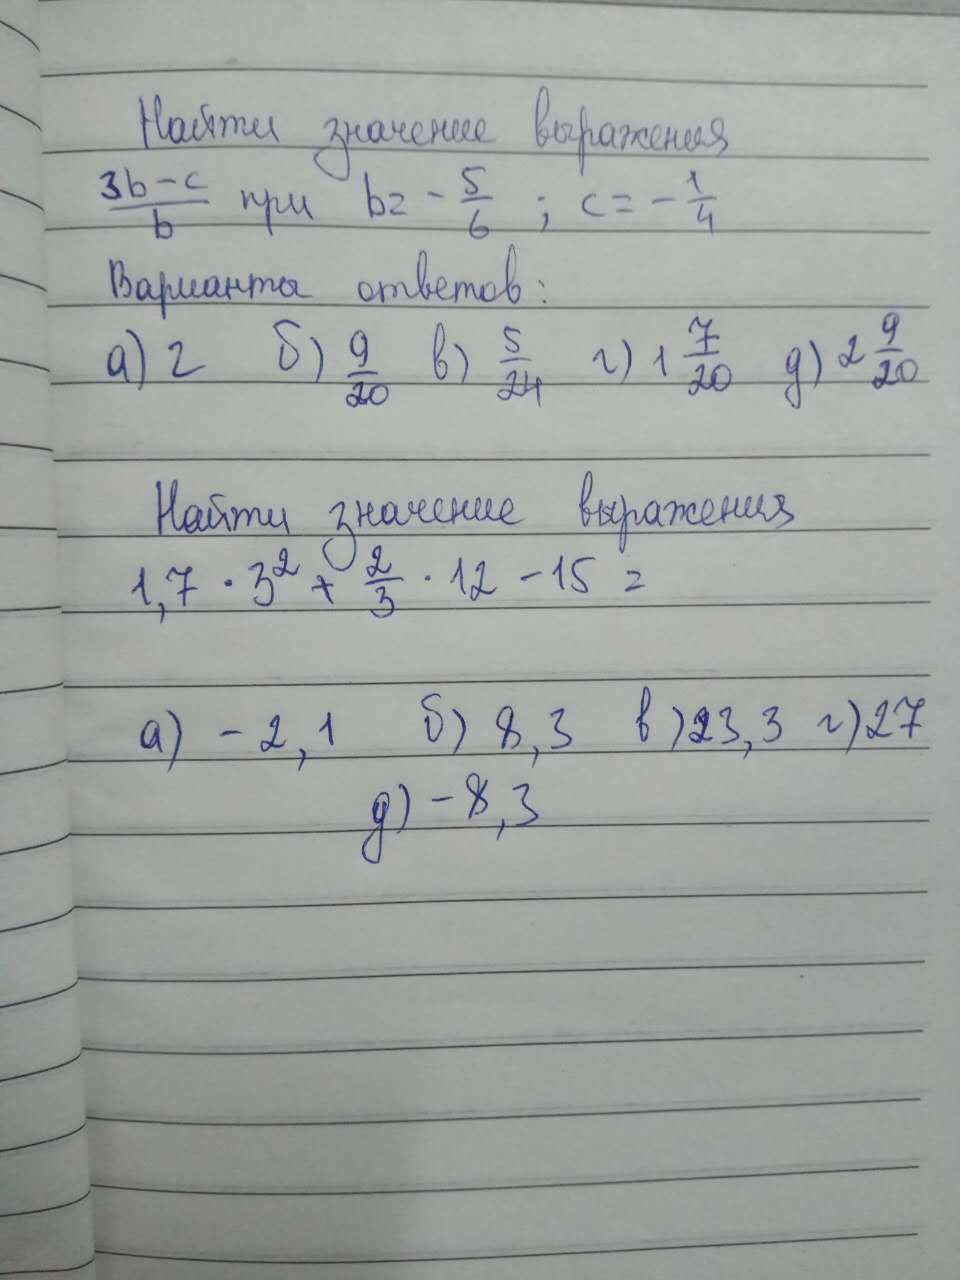 Найти значение выражения
3b-c/b при b= -5/6 ; c= -1/4
Варианты ответов:
а) 2 б) 9/20 в) 5/24 г) 1 7/20 д) 2 9/20
Найти значение выражения
1,7 · 3² + 2/3 · 12 - 15 =
а) - 2,1 б) 8,3 в) 23,3 г) 27
д) - 8,3